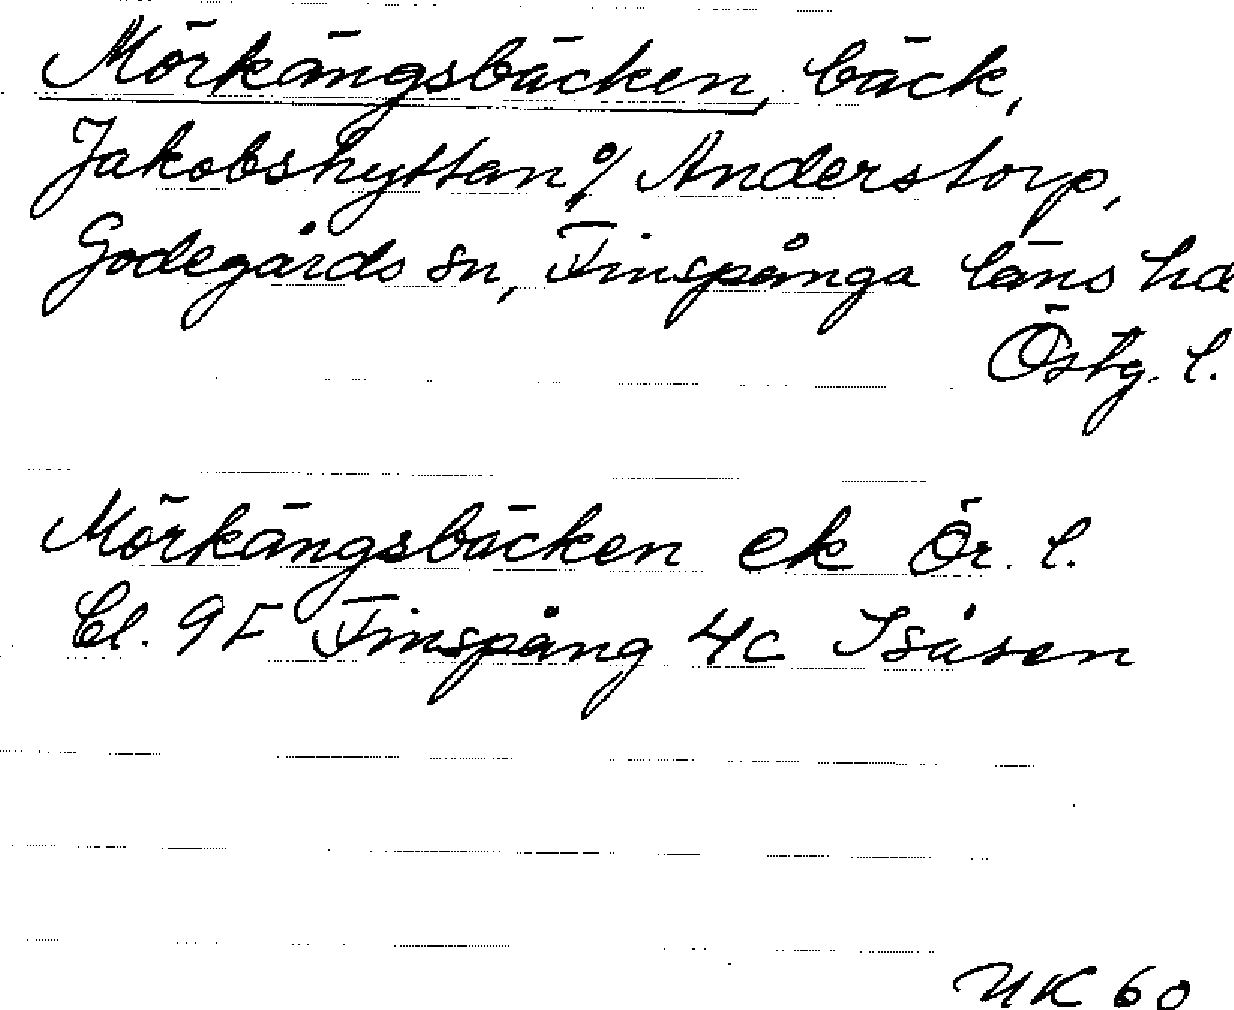 Mörkängsbäcken, bäck,
Jakobshyttan o/ Anderstorp,
Godegårds sn, Finspånga läns hd
Östg. l.
Mörkängsbäcken ek Ör. l.
Bl. 9F Finspång 4c Isåsen
UK 60